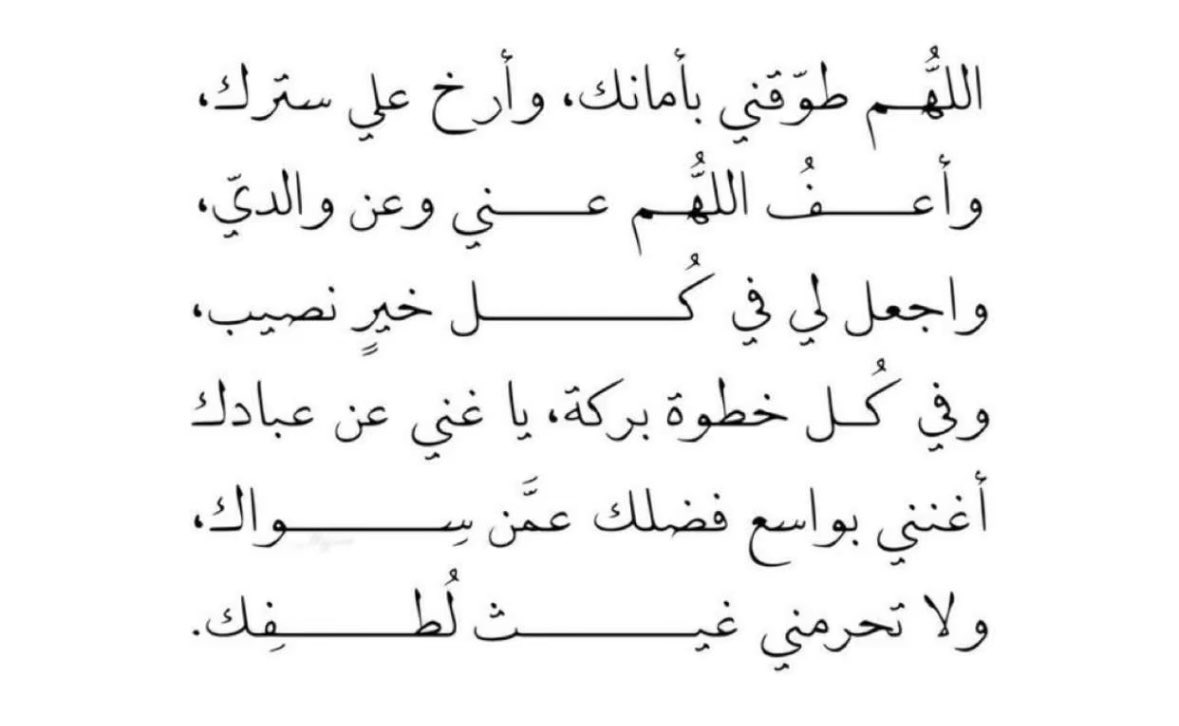 اللهُّم طوّقني بأمانك، وأرخ علي سترك،
وأعفُ اللهُّم عني وعن والديّ،
واجعل لي في كُل خيرٍ نصيب،
وفي كُل خطوة بركة، يا غني عن عبادك
أغنني بواسع فضلك عمَّن سِواك،
ولا تحرمني غيث لُطفِك.